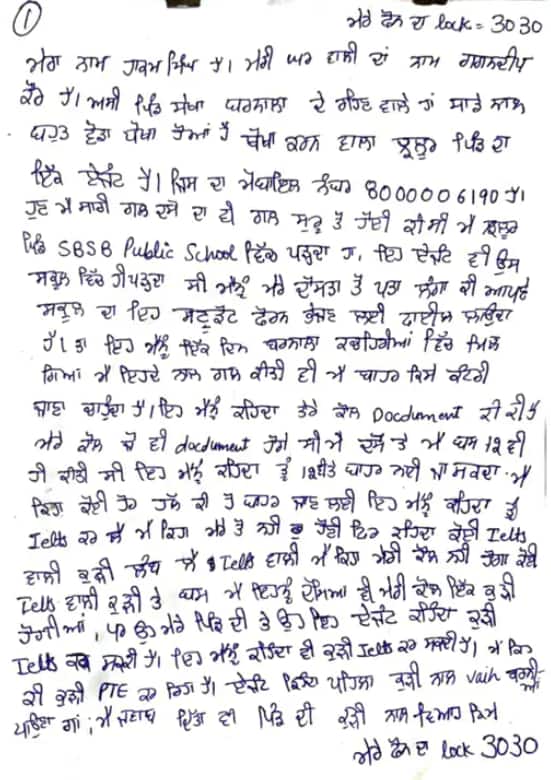 1
ਮੇਰੇ ਫੋਨ ਦਾ lock = 3030
ਮੇਰਾ ਨਾਮ ਹਾਕਮ ਸਿੰਘ ਹੈ। ਮੇਰੀ ਘਰ ਵਾਲੀ ਦਾਂ ਨਾਮ ਗਗਨਦੀਪ
ਕੌਰ ਹੈ। ਅਸੀ ਪਿੰਡ ਸੇਖਾ ਬਰਨਾਲਾ ਦੇ ਰਹਿਣ ਵਾਲੇ ਹਾਂ ਸਾਡੇ ਨਾਲ
ਬਹੁਤ ਵੱਡਾ ਧੋਖਾ ਹੋਆਂ ਹੈ ਧੋਖਾ ਕਰਨ ਵਾਲਾ ਝਲੂਰ ਪਿੰਡ ਦਾ
ਇੱਕ ਏਜੰਟ ਹੈ। ਜਿਸ ਦਾ ਮੋਬਾਇਲ ਨੰਬਰ 8000006190 ਹੈ।
ਹੁਣ ਮੈ ਸਾਰੀ ਗਲ ਦਸੋ ਦਾ ਵੀ ਗਲ ਸੁਰੂ ਤੋ ਹੋਈ ਕੀ ਸੀ ਮੈ ਝਲੂਰ
ਪਿੰਡ SBSB Public School ਵਿੱਚ ਪੜਦਾ ਹਾ, ਇਹ ਏਜੰਟ ਵੀ ਉਸ
ਸਕੂਲ ਵਿੱਚ ਹੀ ਪੜਦਾ ਸੀ ਮੈਨੂੰ ਮੇਰੇ ਦੋਸਤਾ ਤੋ ਪਤਾ ਲੱਗਾ ਕੀ ਆਪਣੇ
ਸਕੂਲ ਦਾ ਇਹ ਸਟੂਡੈਂਟ ਫੋਰਨ ਭੇਜਣ ਲਈ ਫਾਈਲ ਲਾਉਂਦਾ
ਹੈ। ਤਾ ਇਹ ਮੈਨੂੰ ਇੱਕ ਦਿਨ ਬਰਨਾਲਾ ਕਚਹਿਰੀਆਂ ਵਿੱਚ ਮਿਲ
ਗਿਆਂ ਮੈ ਇਹਦੇ ਨਾਲ ਗਲ ਕੀਤੀ ਵੀ ਮੈ ਬਾਹਰ ਕਿਸੇ ਕੰਟਰੀ
ਜਾਣਾ ਚਾਹੁੰਦਾ ਹੈ। ਇਹ ਮੈਨੂੰ ਕਹਿੰਦਾ ਤੇਰੇ ਕੋਲ Docdument ਕੀ ਕੀ ਹੈ
ਮੇਰੇ ਕੋਲ ਜੋ ਵੀ docdument ਹੋਗੇ ਸੀ ਮੈ ਦਸੇ ਤੇ ਮੈ ਬਸ 12 ਵੀ
ਹੀ ਕੀਤੀ ਸੀ ਇਹ ਮੈਨੂੰ ਕਹਿੰਦਾ ਤੂੰ 12 ਬੀਤੇ ਬਾਹਰ ਨਈ ਜਾ ਸਕਦਾ। ਮੈ
ਕਿਹਾ ਕੋਈ ਹੋਰ ਹਲ ਕੀ ਹੈ ਬਾਹਰ ਜਾਣ ਲਈ ਇਹ ਮੈਨੂੰ ਕਹਿੰਦਾ ਤੂੰ
Ielts ਕਰ ਲੈ ਮੈ ਕਿਹਾ ਮੇਰੇ ਤੋ ਨਹੀ ਹੋਣੀ ਫਿਰ ਕਹਿੰਦਾ ਕੋਈ Ielts
ਵਾਲੀ ਕੁੜੀ ਲੱਭ ਲੈ Ielts ਵਾਲੀ ਮੈ ਕਿਹਾ ਮੇਰੀ ਕੋਲ ਨਹੀ ਹੋਗਾ ਕੋਈ
Ielts ਵਾਲੀ ਕੁੜੀ ਤੇ ਬਸ ਮੈ ਇਹਨੂੰ ਦੱਸਿਆ ਵੀ ਮੇਰੀ ਕੋਲ ਇੱਕ ਕੁੜੀ
ਹੋਗੀਆਂ, ਪਰ ਉਹ ਮੇਰੇ ਪਿੰਡ ਦੀ ਤੇ ਉਹ ਇਹ ਏਜੰਟ ਕਹਿੰਦਾ ਕੁੜੀ
Ielts ਕਰ ਸਕਦੀ ਹੈ। ਇਹ ਮੈਨੂੰ ਕਹਿੰਦਾ ਵੀ ਕੁੜੀ Ielts ਕਰ ਸਕਦੀ ਹੈ। ਮੈ ਕਿਹਾ
ਕੀ ਕੁੜੀ PTE ਕਰ ਰਿਹਾ ਹੈ। ਏਜੰਟ ਕਿਹਾ ਪਹਿਲਾ ਕੁੜੀ ਨਾਲ vaih ਕਰਨੀਆਂ
ਪਾਉਣਾ ਗਾਂ; ਮੈ ਜਵਾਬ ਦਿੱਤਾ ਵੀ ਪਿੰਡ ਦੀ ਕੁੜੀ ਨਾਲ ਵਿਆਹ ਕਿਸ
ਮੇਰੇ ਫੋਨ ਦਾ lock 3030